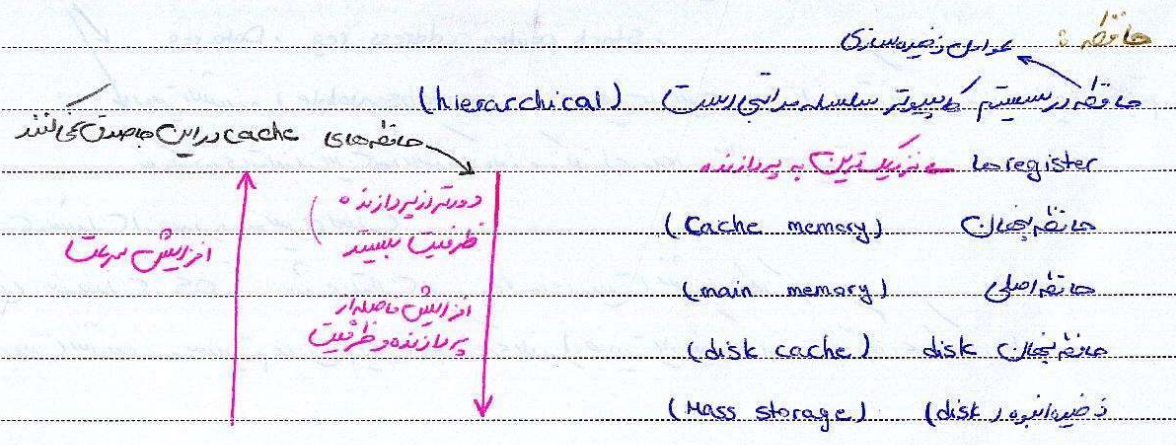 حافظه :
عوامل ذخیره‌سازی
حافظه در سیستم کامپیوتر سلسله مراتبی است (hierarchical)
حافظه‌های cache در این جا صدق نمی‌کنند
registerها ← نزدیک‌ترین به پردازنده
حافظه پنهان (Cache memory)
حافظه اصلی (main memory)
حافظه پنهان disk (disk cache)
ذخیره انبوه (disk) (Mass storage)
دورتر از پردازنده
ظرفیت بیشتر
افزایش فاصله از
پردازنده و ظرفیت
افزایش سرعت